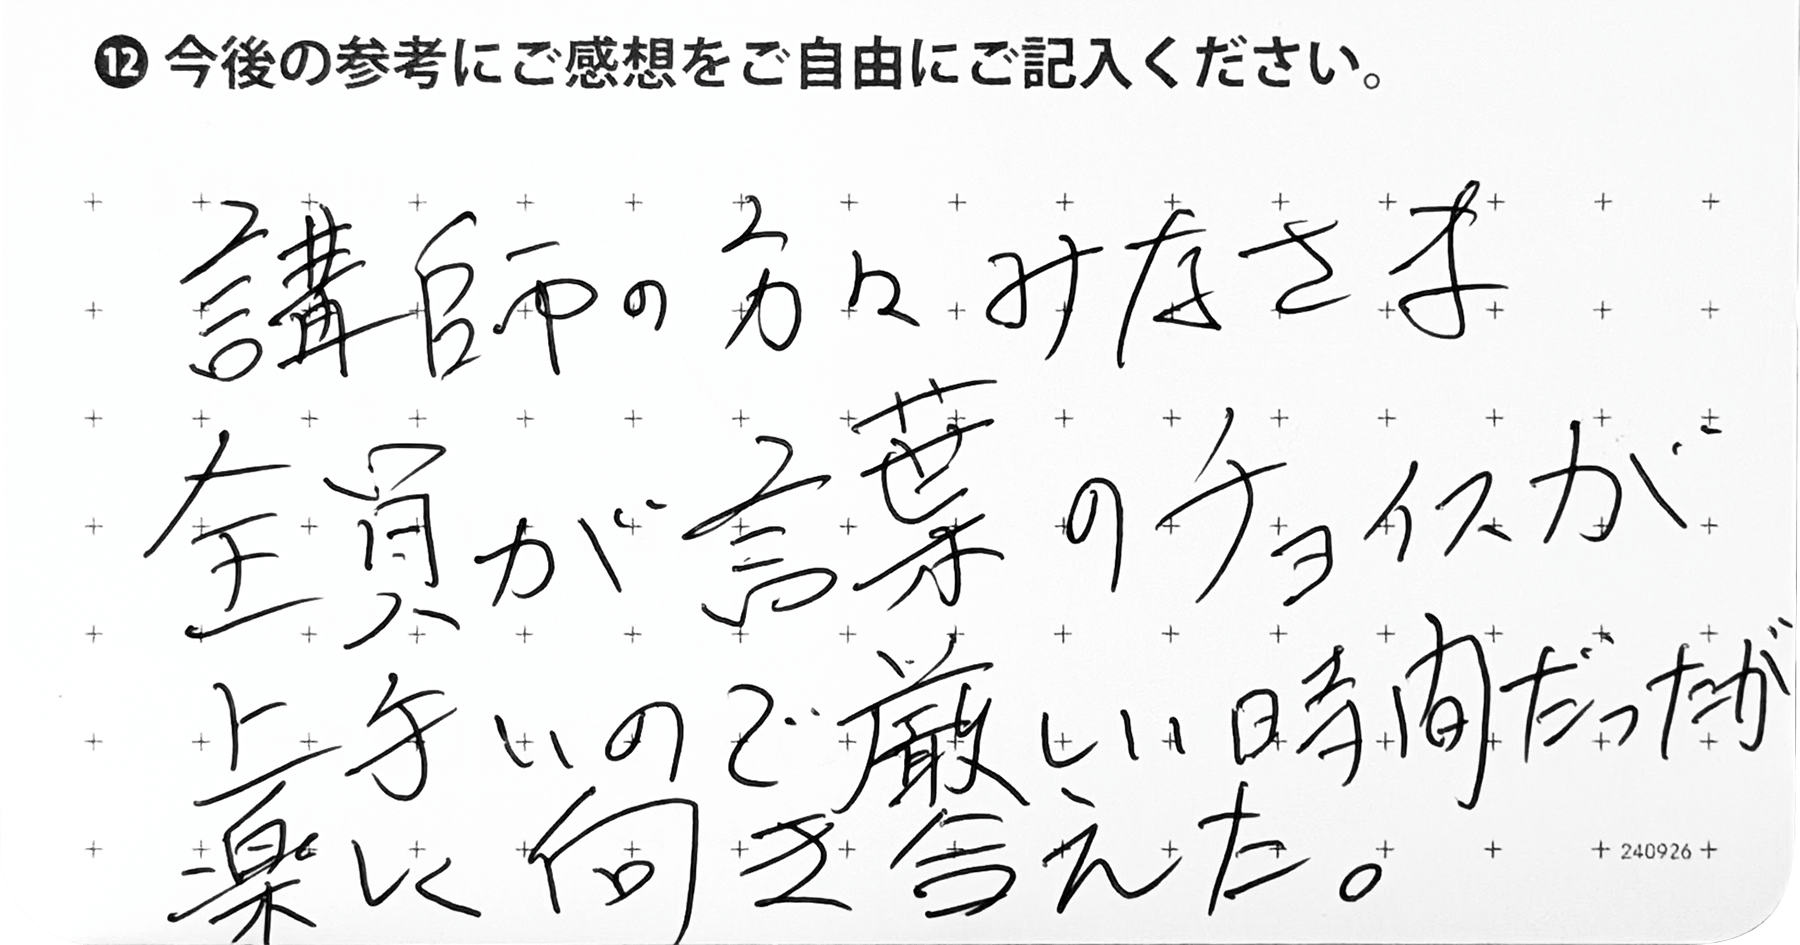 ⓬ 今後の参考にご感想をご自由にご記入ください。
講師の方々みなさま
全員が言葉のチョイスが
上手いので厳しい時間だったが
楽しく向き合えた。
240926